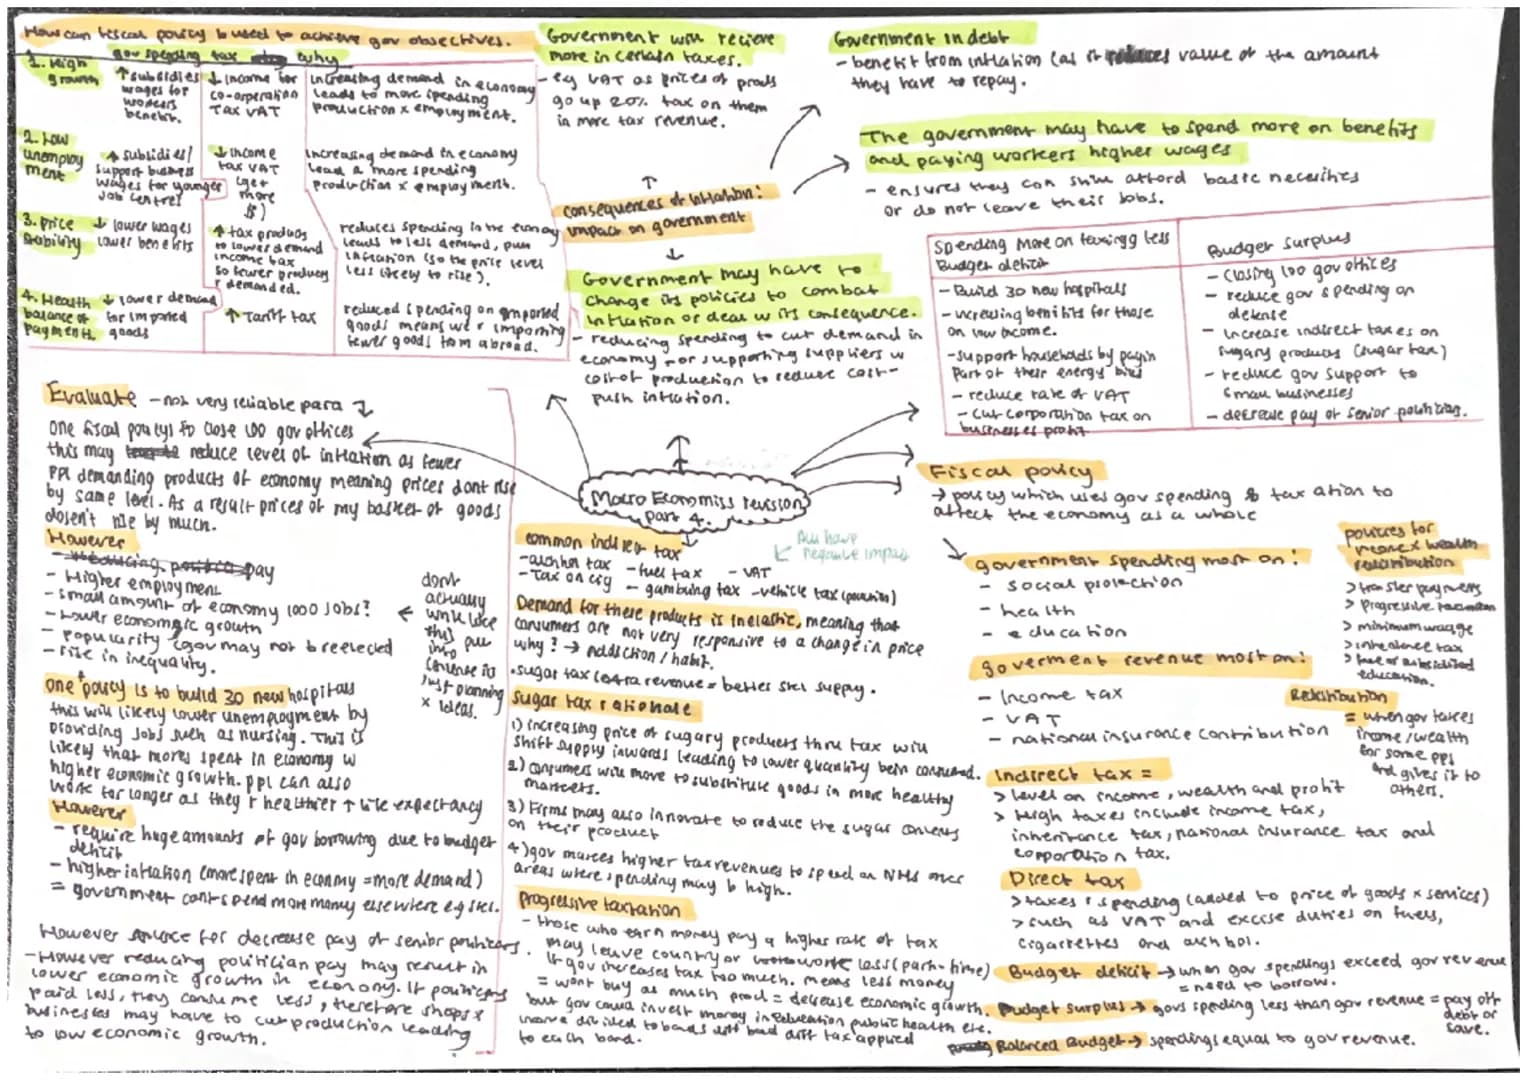 How can fiscal policy b used to achieve gov objectives.
gov spending tax why
1. High growth
↑ subsidies wages for workers benefit.
↓ income for co-orperation Tax VAT
increasing demand in economy
leads to more spending
production x employment.
2. Low unemploy ment
↑ subsidies/ support business wages for younger Job centre
↓ income tax VAT (get more $)
increasing demand in economy
lead a more spending
production x employment.
3. Price stability
↓ lower wages lower benefits
↑ tax producs to lower demand income tax so fewer producs r demanded.
reduces spending in the econmy
leads to less demand, pull
inflation (so the price level
less likely to rise).
4. Health balance of payments
↓ lower demand for imported goods
↑ Tariff tax
reduced spending on emported
goods means we r importing
fewer goods from abroad.
Government will recieve
more in certain taxes.
- eg VAT as prices of prods
go up 20% tax on them
in more tax revenue.
Government in debt
- benefit from inflation (as it reduces value of the amount
they have to repay.
The government may have to spend more on benefits
and paying workers higher wages
- ensures they can still afford basic necesities
or do not leave their jobs.
consequences of inflation:
impact on government
Government may have to
change its policies to combat
inflation or deal w its consequence.
- reducing spending to cut demand in
economy - or supporting suppliers w
cost of production to reduce cost-
push inflation.
Spending More on taxing less
Budget deficit
- Build 30 new hospitals
- increasing benifits for those
on low income.
- support households by payin
Part of their energy bills
- reduce rate of VAT
- cut corporation tax on
businesses profit
Budget surplus
- closing 100 gov offices
- reduce gov spending on
defense
- increase indirect taxes on
sugary producs (sugar tax)
- reduce gov support to
small businesses
- decrease pay of senior politicians.
Evaluate - not very reliable para
One fiscal policy is to close 100 gov offices
this may reduce level of inflation as fewer
PPL demanding products of economy meaning prices dont rise
by same level. As a result prices of my basket of goods
dosen't rise by much.
However
pay
- Higher employment
- small amount of economy 1000 jobs?
- Lower economic growth
- popularity (gov may not b reelected
- rise in inequality.
dont
actually
write like
this put
into
just planning
x ideas.
One policy is to build 30 new hospitals
this will likely lower unemployment by
providing jobs such as nursing. This is
likely that more is spent in economy w
higher economic growth. ppl can also
work for longer as they r healthier ↑ life expectancy
However
- require huge amounts of gov borrowing due to budget
deficit
- higher inflation (more spent in econmy = more demand)
= government cant spend more money elsewhere eg
However for decrease pay of senior politicians.
- However reducing politician pay may result in
lower economic growth in economy. If politicians
paid less, they consume less, therefore shops x
businesses may have to cut production leading
to low economic growth.
Macro Economics revision
part 4.
All have
negative impac
common indirect tax
- alcohol tax - fuel tax - VAT
- Tax on cig - gambling tax - vehicle tax
Demand for these products is inelastic, meaning that
consumers are not very responsive to a change in price
why? → Addiction / habit.
. sugar tax extra revenue = better supply.
Sugar tax rationale
1) increasing price of sugary products thru tax will
shift supply inwards leading to lower quantity bein consumed.
2) consumers will move to substitute goods in more healthy
markets.
3) Firms may also innovate to reduce the sugar
on their product
4) gov makes higher tax revenues to spend on NHS
areas where spending may b high.
Progressive taxtation
- those who earn money pay a higher rate of tax
may leave country or work less (part-time)
If gov increases tax too much. means less money
= wont buy as much prod = decrease economic growth.
but gov could invest money in education public health etc.
income divided to bands diff band diff tax applied
to each band.
Fiscal policy
→ policy which uses gov spending & taxation to
affect the economy as a whole
government spending most on:
- social protection
- health
- education
goverment revenue most on:
- income tax
- VAT
- national insurance contribution
Indirect tax =
> level on income, wealth and profit
> High taxes include income tax,
inheritance tax, national insurance tax and
corporation tax.
Direct tax
> taxes r spending (added to price of goods x services)
> such as VAT and excise duties on fuels,
cigarettes and alchhol.
Budget deficit → when gov spendings exceed gov revenue
= need to borrow.
Budget surplus → govs spending less than gov revenue = pay off
debt or
save.
Balanced Budget → spendings equal to gov revenue.
policies for
income x wealth
redistribution
> transfer payments
> Progressive taxation
> minimum wage
> inheritence tax
> free or subsidised
education.
Redistribution
= when gov takes
income/wealth
for some ppl
and gives it to
others.